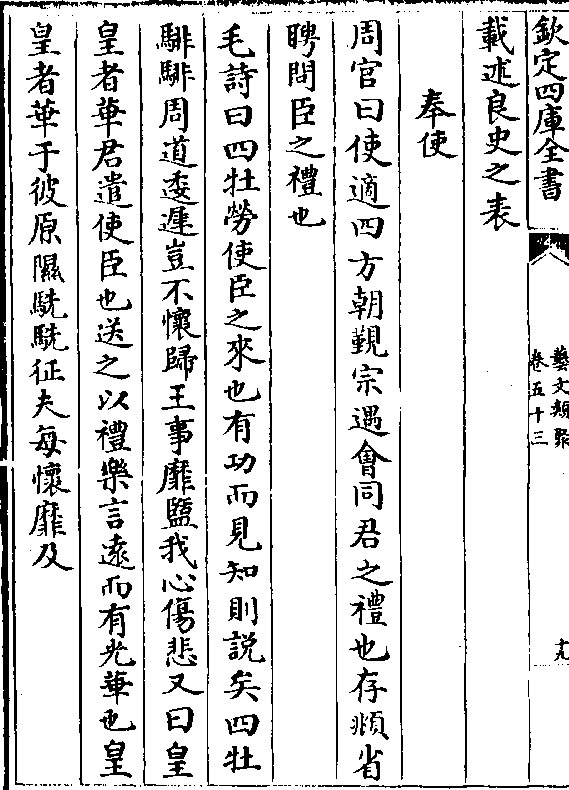 欽定四庫全書
藝文類聚
卷五十三
十九
載述良史之表
奉使
周官曰使適四方朝覲宗遇會同君之禮也存頫省
聘問臣之禮也
毛詩曰四牡勞使臣之來也有功而見知則說矣四牡
騑騑周道逶遲豈不懷歸王事靡盬我心傷悲又曰皇
皇者華君遣使臣也送之以禮樂言遠而有光華也皇
皇者華于彼原隰駪駪征夫每懷靡及